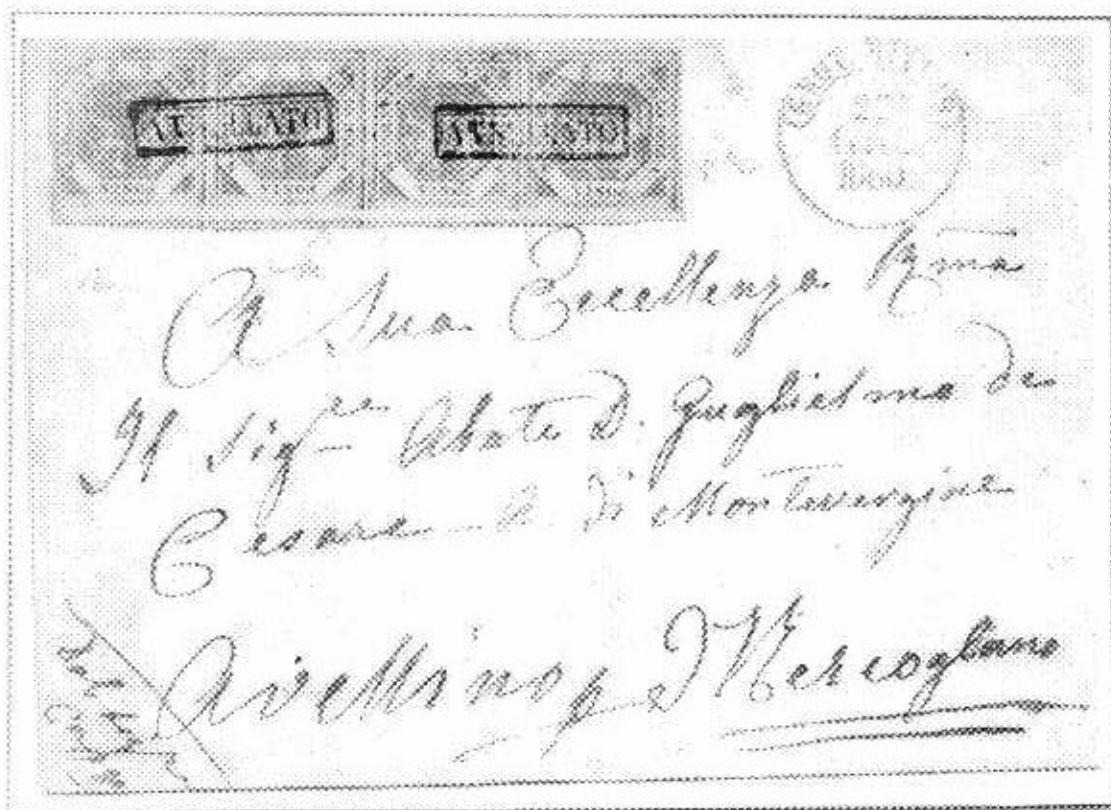 ANNULLATO ANNULLATO
1860
A Sua Eccellenza Rma
Il Sigre Abate D. Guglielmo de
Cesare A. di Montevergine
Avellino p Mercogliano